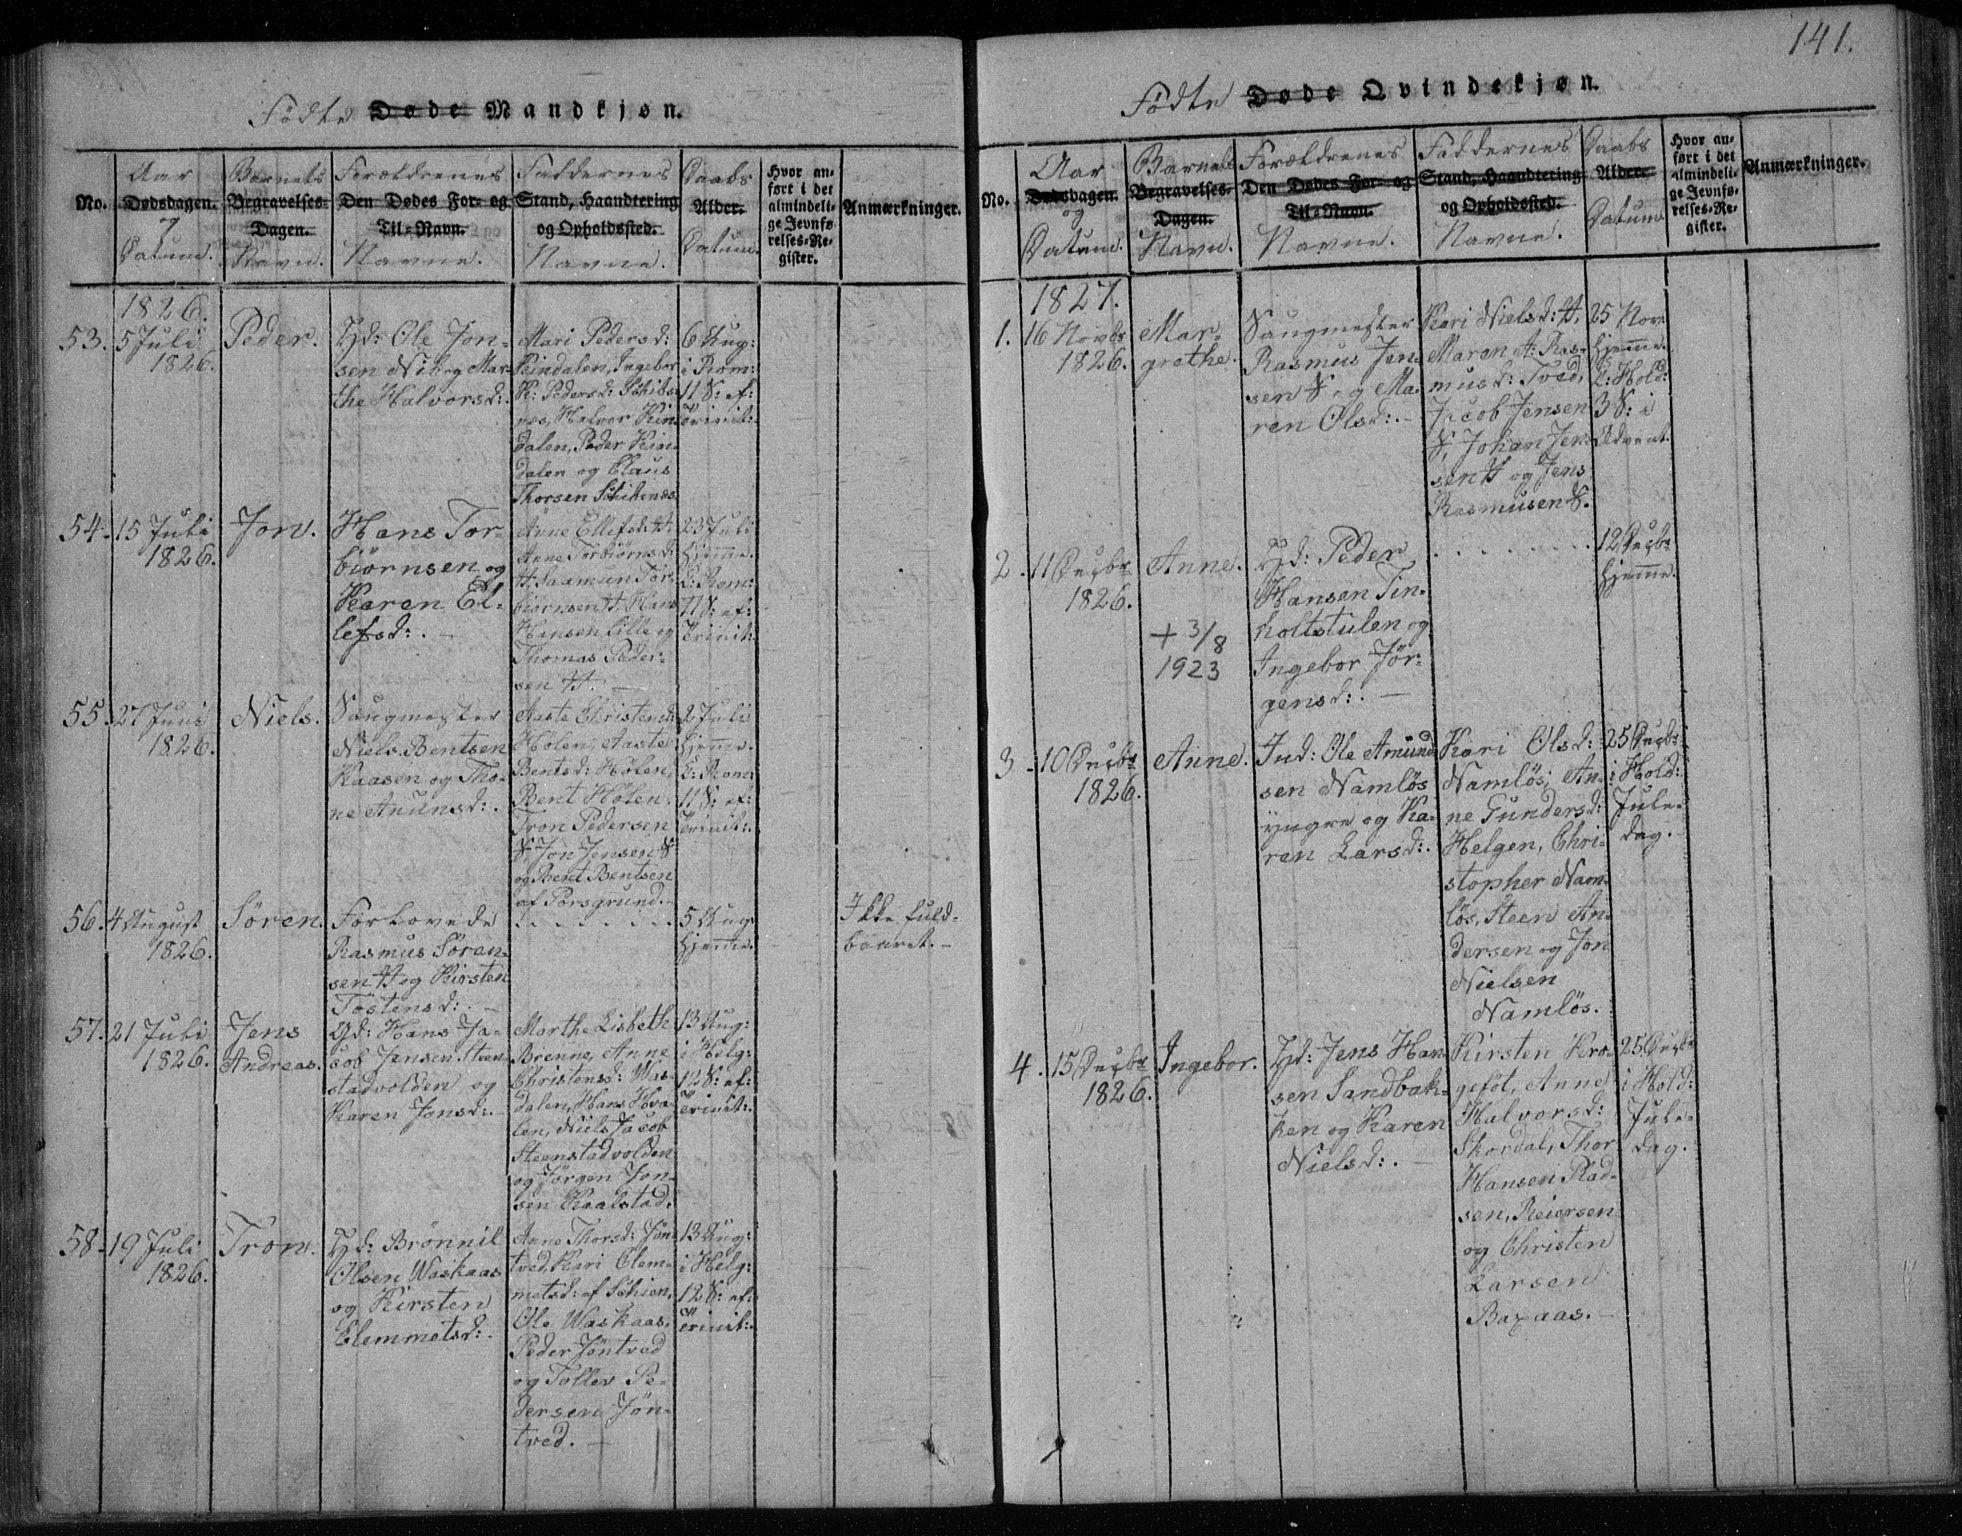 141.
Födte Døde Mandkjøn.
No.
Aar
Dødsdagen.
og
Datum.
Barnets
Begravelses-
Dagen.
Navn.
Forældrenes
Den Dødes For- og
Til-Navn.
Navne.
Faddernes
Stand, Haandtering
og Opholdssted.
Navne.
Daabs
Alder.
Datum.
Hvor an-
ført i det
almindeli-
ge Jevnfø-
relses-Re-
gister.
Anmærkninger.
1826.
53.
5 Juli
1826.
Peder.
Gd: Ole Jon-
sen Nib og Mar-
the Halvorsd:.
Mari Pedersd:
Keindalen, Ingebor
K: Pedersd: Schibs-
nes, Halvor Kin-
dalen, Peder Kin-
dalen og Claus
Thorsen Schibenæs
6 Aug:
i Rom:
11 S: ef:
Trinit:.
54.
15 Juli
1826.
Jon.
Hans Tor-
biörnsen og
Karen El-
lefsd:. —
Anne Ellefsd: H.
Anne Torbiörnsd:
H. Saamund Tor-
biörnsen H. Hans
Hansen Lille og
Thomas Peder-
sen H. —
23 Juli
hjeme.
L: Rom:
11 S: ef:
Trinit:.
55.
27 Juni
1826.
Niels.
Saugmester
Niels Bentsen
Kaasen og Tho-
ne Anunsd:.
Aaste Christensd:
Holen, Aaste
Bentsd: Holen,
Bent Holen,
Tron Pedersen
S, Jon Jensen S
og Bent Bentsen
af Porsgrund.
2 Juli
hjeme.
L: Rom:
11 S: ef:
Trinit:.
56.
4 August
1826.
Sören.
Forlovede
Rasmus Sören-
sen H og Kirsten
Töstensd:. —
. . . . . . .
5 Aug:
hjeme.
Ikke fuld-
baaret. —
57.
21 Juli
1826.
Jens
Andreas.
Gd: Hans Ja-
cob Jansen Steen-
stadvolden og
Karen Jonsd:.
Marthe Lisbeth
Brenne, Anne
Christensd: Was-
dalen, Hans Hva-
len, Niels Jacob
Steenstadvolden
og Jörgen Jon-
sen Kaalstad.
13 Aug:
i Helg:
12 S: ef:
Trinit:.
58.
19 Juli
1826.
Tron.
Gd: Brönnil
Olsen Waskaas
og Kirsten
Clemmetsd:.
Anne Thorsd: Jön-
tved, Kari Clem-
metsd: af Schien,
Ole Waskaas,
Peder Jöntved
og Tollev Pe-
dersen Jön-
tved. —
13 Aug:
i Helg:
12 S: ef:
Trinit:.
Födte Døde Qvindekjøn.
No.
Aar
Dødsdagen.
og
Datum.
Barnets
Begravelses-
Dagen.
Navn.
Forældrenes
Den Dødes For- og
Til-Navn.
Navne.
Faddernes
Stand, Haandtering
og Opholdssted.
Navne.
Daabs
Alder.
Datum.
Hvor an-
ført i det
almindeli-
ge Jevnfø-
relses-Re-
gister.
Anmærkninger.
1827.
1.
16 Novbr
1826.
Mar-
grethe.
Saugmester
Rasmus Jen-
sen S. og Ma-
ren Olsd:. —
Kari Nielsd: H.
Maren A: Ras-
musd: Tved,
Jacob Jensen
S, Johan Jen-
sen H og Jens
Rasmusen S.
25 Nov
hjeme.
L: Hold:
3 S: i
Advent.
2.
11 Decbr
1826.
Anne.
+ 3/8
1923
Gd: Peder
Hansen Tin-
holtstulen og
Ingebor Jör-
gensd:. —
. . . . . . . .
12 Decbr
hjeme.
3.
10 Decbr
1826.
Anne.
Ind: Ole Amund-
sen Namlös
yngre og Ka-
ren Larsd:.
Kari Olsd:
Namlös, An-
ne Gundersd:
Helgen, Chri-
stopher Nam-
lös, Steen An-
dersen og Jon
Nielsen
Namlös.
25 Decbr
i Hold:
Jule-
dag.
4.
15 Decbr
1826.
Ingebor.
Gd: Jens Han-
sen Sandbak-
ken og Karen
Nielsd:. —
Kirsten Kro-
gefot, Anne
Halvorsd:
Skordal, Thor
Hansen Plad-
sen, Reiersen
og Christen
Larsen
Baxaas. —
25 Decbr
i Hold:
Jule-
dag.